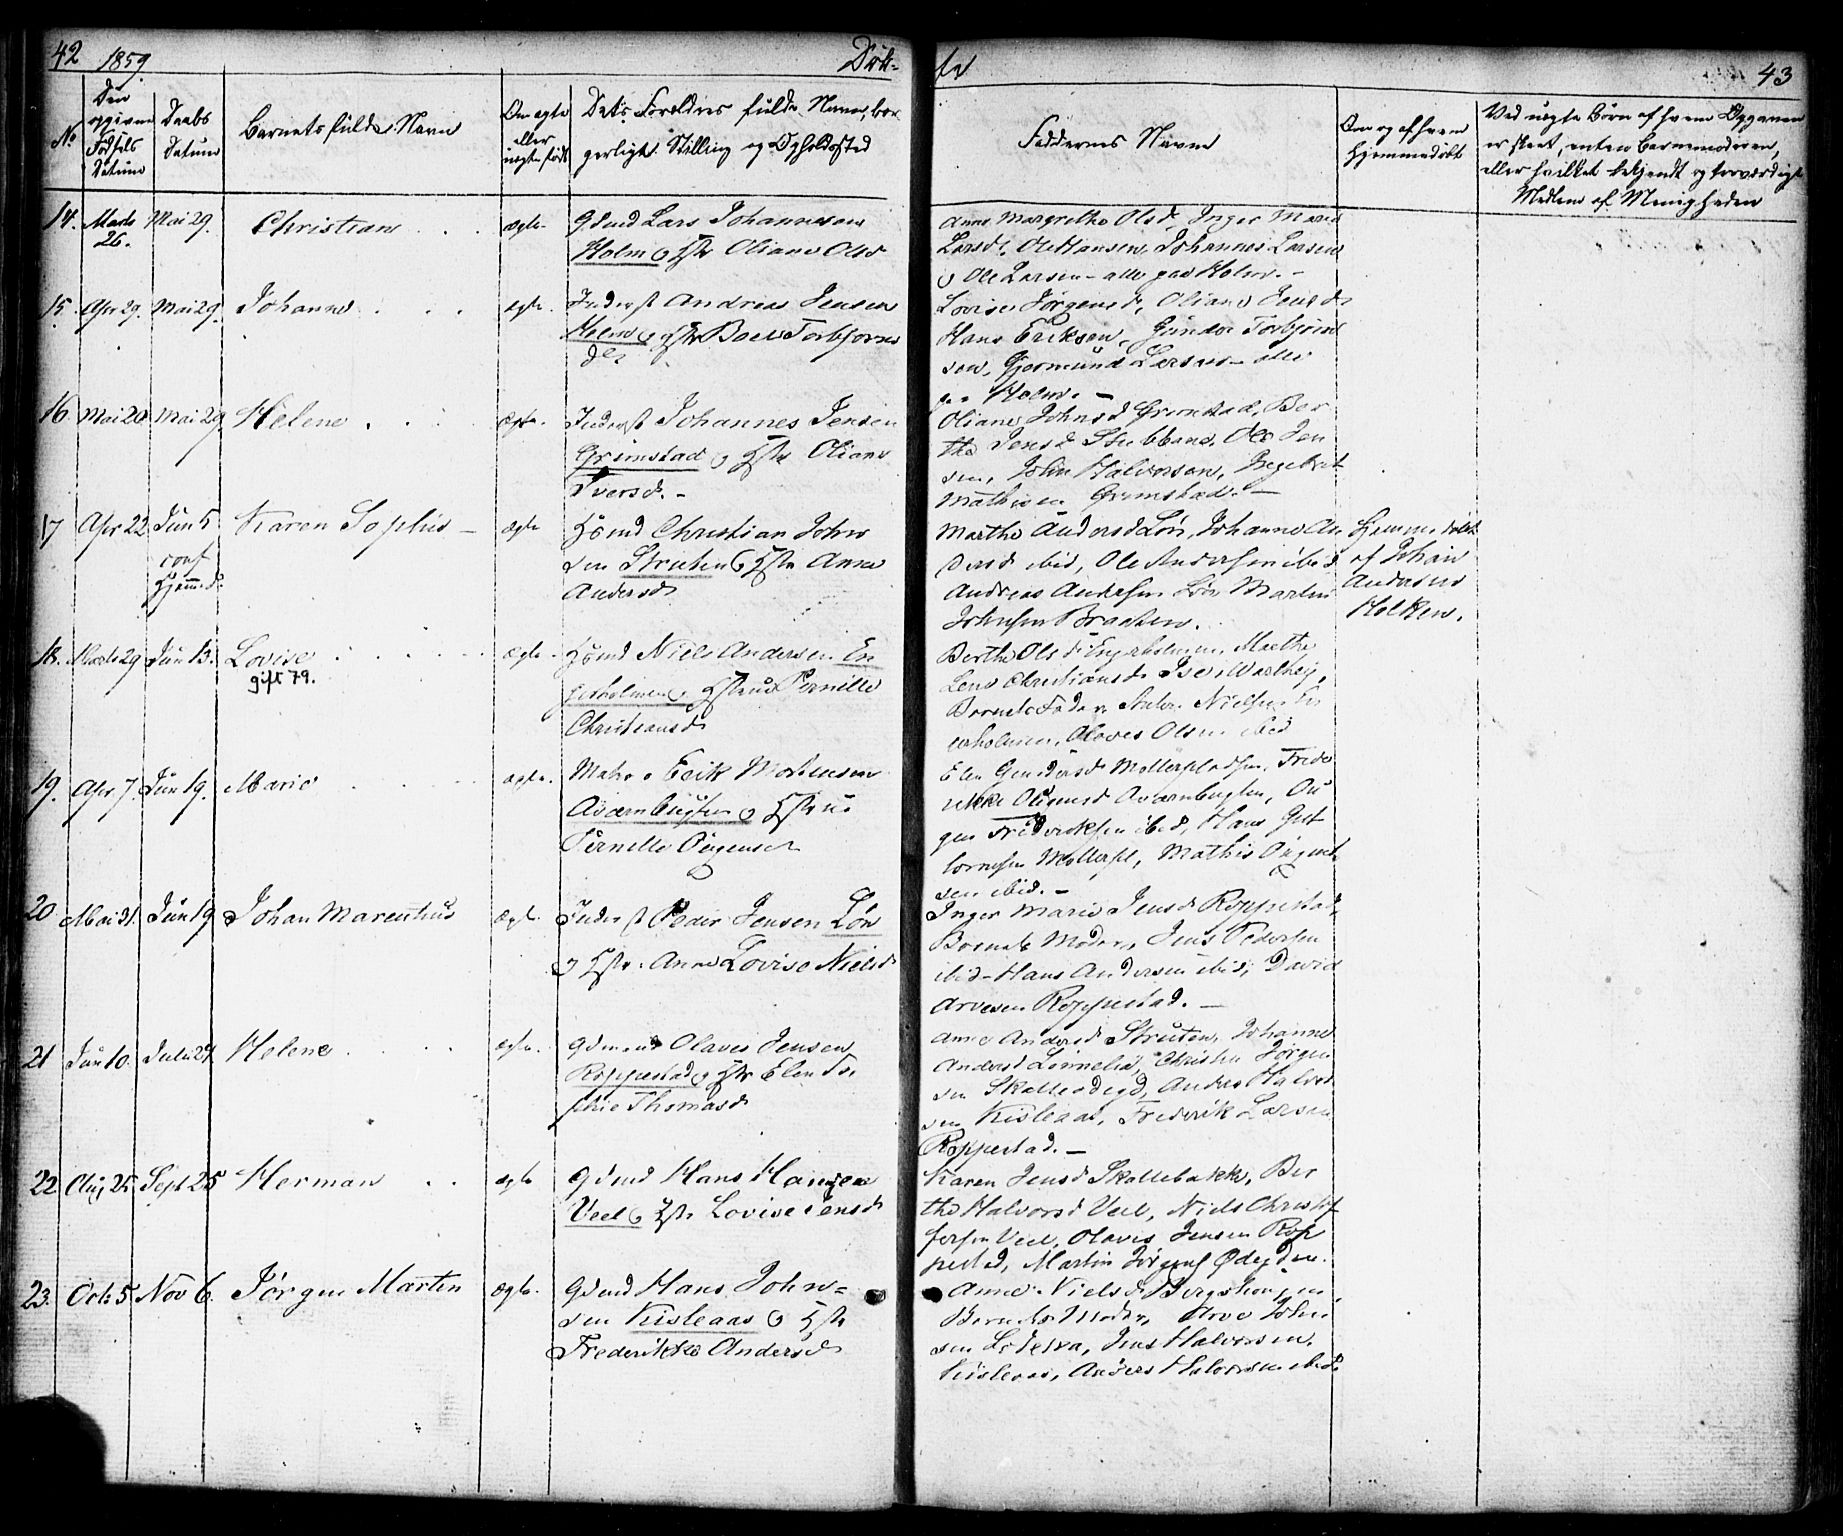 42 1859 Døb-
te 43
No
Den
opgivne
Fødsels
Datum
Daabs
Datum
Barnets fulde Navn
Om ægte
eller
uægte født
Dets Forældres fulde Navn, bor-
gerlige Stilling og Opholdssted
Faddernes Navne
Om og af hvem
hjemmedøbt
Ved uægte Børn af hvem Opgaven
er skeet, enten Barnemoderen,
eller hvilket bekjendt og troværdigt
Medlem af Menigheden
14. Marts 26. Mai 29. Christian ægte
Gdmd Lars Johannesen
Holm og Hstr Oliane Olsd
Anne Margrethe Olsd, Inger Marie
Larsd, Ole Hansen, Johannes Larsen
og Ole Larsen - alle paa Holm. -
15. Apr 29. Mai 29. Johanne ægte.
Inderst Andreas Jensen
Holm og Hstr Torbjørns
der
Lovise Jørgensd, Oliane Jensd
Hans Eriksen, Gunder Torbjørn
sen, Gjermund Larsen - alle
paa Holm. -
16 Mai 20 Mai 29. Helene ægte.
Inderst Johannes Jensen
Grimstad og Hstr Oliane
Iversd. -
Oliane Johnsd Grimstad, Ber
the Jensd Stubbane, Ole Jen
sen, John Halvorsen, Ingebret
Mathisen Grimstad. -
17 Apr 22 Jun 5 Karen Sophie - ægte
conf
Hjemmed.
Hsmd Christian John
sen Struten og Hstr Anne
Andersd
Marthe Andersd Løn, Johanne An
dersd ibid, Ole Andersen ibid
Andreas Andersen Løn Martin
Johnsen Braaten.
Hjemmedøbt
af Johan
Andersen
Holtken.
18. Marts 29 Jun 13. Lovise ægte.
gift 79.
Hsmd Niels Andersen En
gerholmen og Hstru Pernille
Christiansd
Berthe Olsd Engerholmen, Marthe
Lene Christiansd
Barnets Fader Nielsen En
gerholmen, Olaves Olsen ibid
19. Apr 7. Jun 19. Marie ægte.
Erik Mortensen
Aværnbugten og Hstru
Pernille Ougensd
Elen Gundersd Møllerpladsen, Frede
rikke Ougensd Aværnbugten, Ou
gen Frederiksen ibid, Hans Gut
tormsen Møllerpl, Mathis Ougent
sen ibid. -
20 Mai 31. Jun 19 Johan Marenthius ægte.
Inderst Peder Jensen Løn
og Hstr. Anne Lovise Nielsd
Inger Marie Jensd Roppestad,
Barnets Moder, Jens Pedersen
ibid - Hans Andersen ibid, David
Arvesen Roppestad. -
21 Jun 10. Juli 24 Helene ægte.
Gdmand Olaves Jensen
Roppestad og Hstr Elen So
phie Thomasd
Anne Andersd Struten, Johanne
Andersd Linnelid, Christen Jørgen
sen Skallerødegd, Anders Halvor
sen Kisleaas, Frederik Larsen
Roppestad. -
22 Aug 25. Sept 25 Herman ægte
Gdmd Hans Hansen
Veel og Hstr Lovise Jensd
Karen Jensd Skallebakke, Ber
the Halvorsd Veel, Niels Christof
fersen Veel, Olaves Jensen Rop
pestad, Martin Jørgens Ødegden.
23. Octr 5 Nov 6. Jørgen Martin ægte.
Gdmd Hans John-
sen Kisleaas og Hstr
Frederikke Andersd
Anne Nielsd
Barnets Moder, Arve John
sen Jens Halvorsen
Kisleaas, Anders Halvorsen ibid.